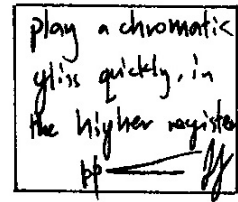 play a chromatic
gliss quickly, in
the higher register
pp ff